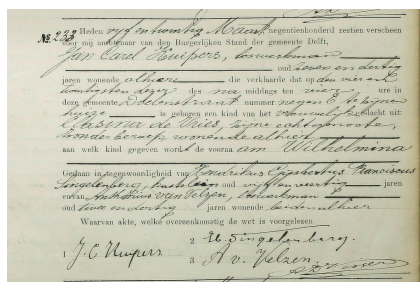 № 233 Heden vijf en twintig Maart negentienhonderd zestien verscheen
voor mij ambtenaar van den Burgerlijken Stand der gemeente Delft,
Jan Carel Kuipers, loswerkman
oud zes en dertig
jaren wonende alhier die verklaarde dat op den vier en
twintigsten dezer des na middags ten vier ure in
deze gemeente nummer negen te zijnen
huize is geboren een kind van het vrouwelijk geslacht uit:
de Vries, zijne echtgenoote,
zonder beroep wonende alhier
aan welk kind gegeven wordt de voornaam Wilhelmina
Gedaan in tegenwoordigheid van Hendrikus Franciscus
Singelenberg, oud vijf en veertig jaren
en van Antonius van Velzen,
oud twee en dertig jaren wonende beiden alhier
Waarvan akte, welke overeenkomstig de wet is voorgelezen.
1 J. C. Kuipers 2 H. Singelenberg.
3 A v. Velzen.